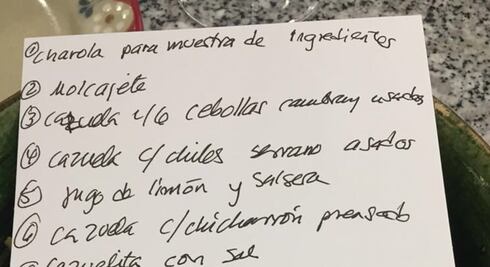 ① charola para muestra de Ingredientes
② Molcajete
③ cazuela c/6 cebollas cambray asadas
④ cazuela c/chiles serrano asados
⑤ jugo de limón y salsera
⑥ cazuela c/chicharrón prensado
cazuelita con sal